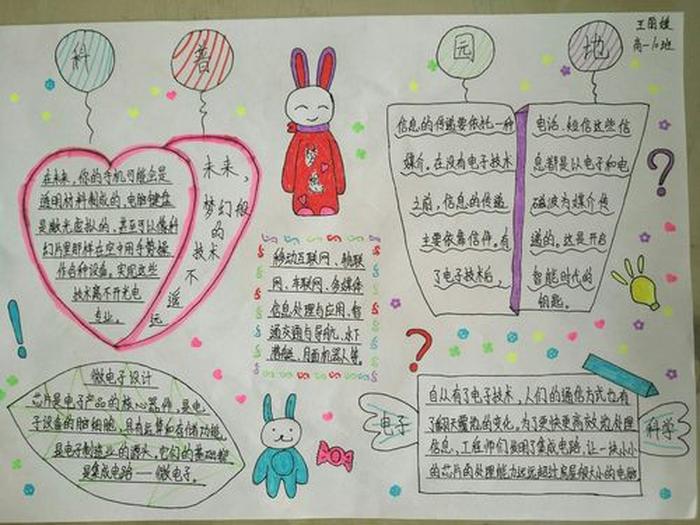 科普园地
王丽媛
高一10班
在未来,你的手机可能会是
透明材料制成的,电脑键盘
是激光虚拟的,甚至可以像科
幻片里那样在空中用手势操
作各种设备。实现这些
技术离不开光电
专业。
未来,
梦幻般
的
技术
不
遥
远
移动互联网、物联
网、车联网、多媒体
信息处理与应用、智
通交通与导航、水下
潜艇、月面机器人等。
信息的传递要依托一种
媒介。在没有电子技术
之前,信息的传递
主要依靠信件。有
了电子技术后,
电话、短信这些信
息都是以电子和电
磁波为媒介传
递的。这是开启
智能时代的
钥匙。
微电子设计
芯片是电子产品的核心器件,是电
子设备的脑细胞,具有运算和存储功能,
是电子制造业的源头,它们的基础都
是集成电路——微电子。
电子
科学
自从有了电子技术,人们的通信方式也有
了翻天覆地的变化,为了更快更高效地处理
信息,工程师们发明了集成电路,让一块小小
的芯片的处理能力远远超过房屋般大小的电脑